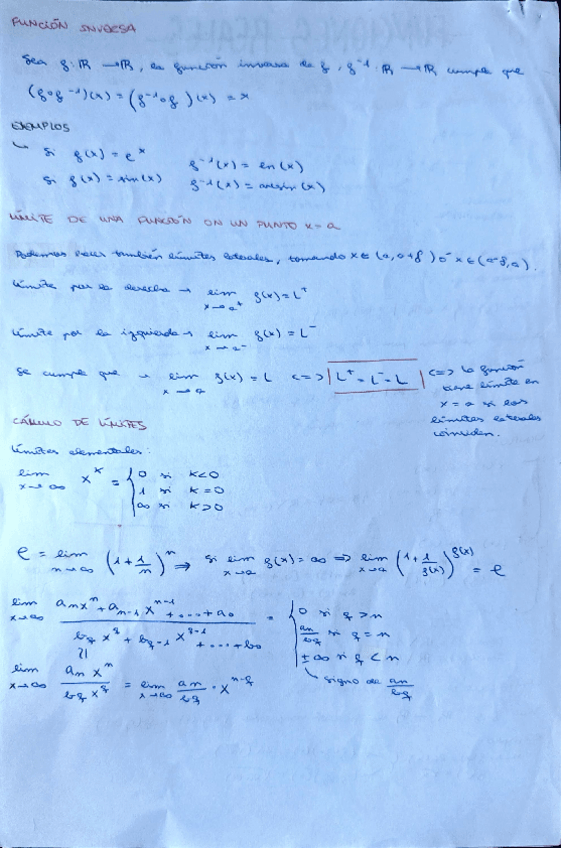 FUNCIÓN INVERSA
Sea f: ℝ → ℝ, la función inversa de f, f⁻¹: ℝ → ℝ cumple que
(f∘f⁻¹)(x) = (f⁻¹∘f)(x) = x
EJEMPLOS
↳ Si f(x) = eˣ f⁻¹(x) = ln(x)
Si f(x) = sin(x) f⁻¹(x) = arcsin(x)
LÍMITE DE UNA FUNCIÓN EN UN PUNTO x = a
Podemos hacer también límites laterales, tomando x ∈ (a, a+δ) ó x ∈ (a-δ, a).
Límite por la derecha → lim x→a⁺ f(x) = L⁺
Límite por la izquierda → lim x→a⁻ f(x) = L⁻
Se cumple que → lim x→a f(x) = L <=> L⁺ = L⁻ = L <=> la función
tiene límite en
x = a si los
límites laterales
coinciden.
CÁLCULO DE LÍMITES
Límites elementales:
lim x→∞ xᵏ = { 0 si k<0
1 si k=0
∞ si k>0
e = lim n→∞ (1+1/n)ⁿ ⇒ Si lim x→a f(x) = ∞ ⇒ lim x→a (1+1/f(x))^f(x) = e
lim x→∞ (aₙxⁿ + aₙ₋₁xⁿ⁻¹ + .... + a₀)/(b_q x^q + b_q-1 x^q-1 + .... + b₀) = { 0 si q > n
aₙ/b_q si q = n
±∞ si q < n
↳ signo de aₙ/b_q
lim x→∞ (aₙ xⁿ)/(b_q x^q) = lim x→∞ aₙ/b_q · x^n-q